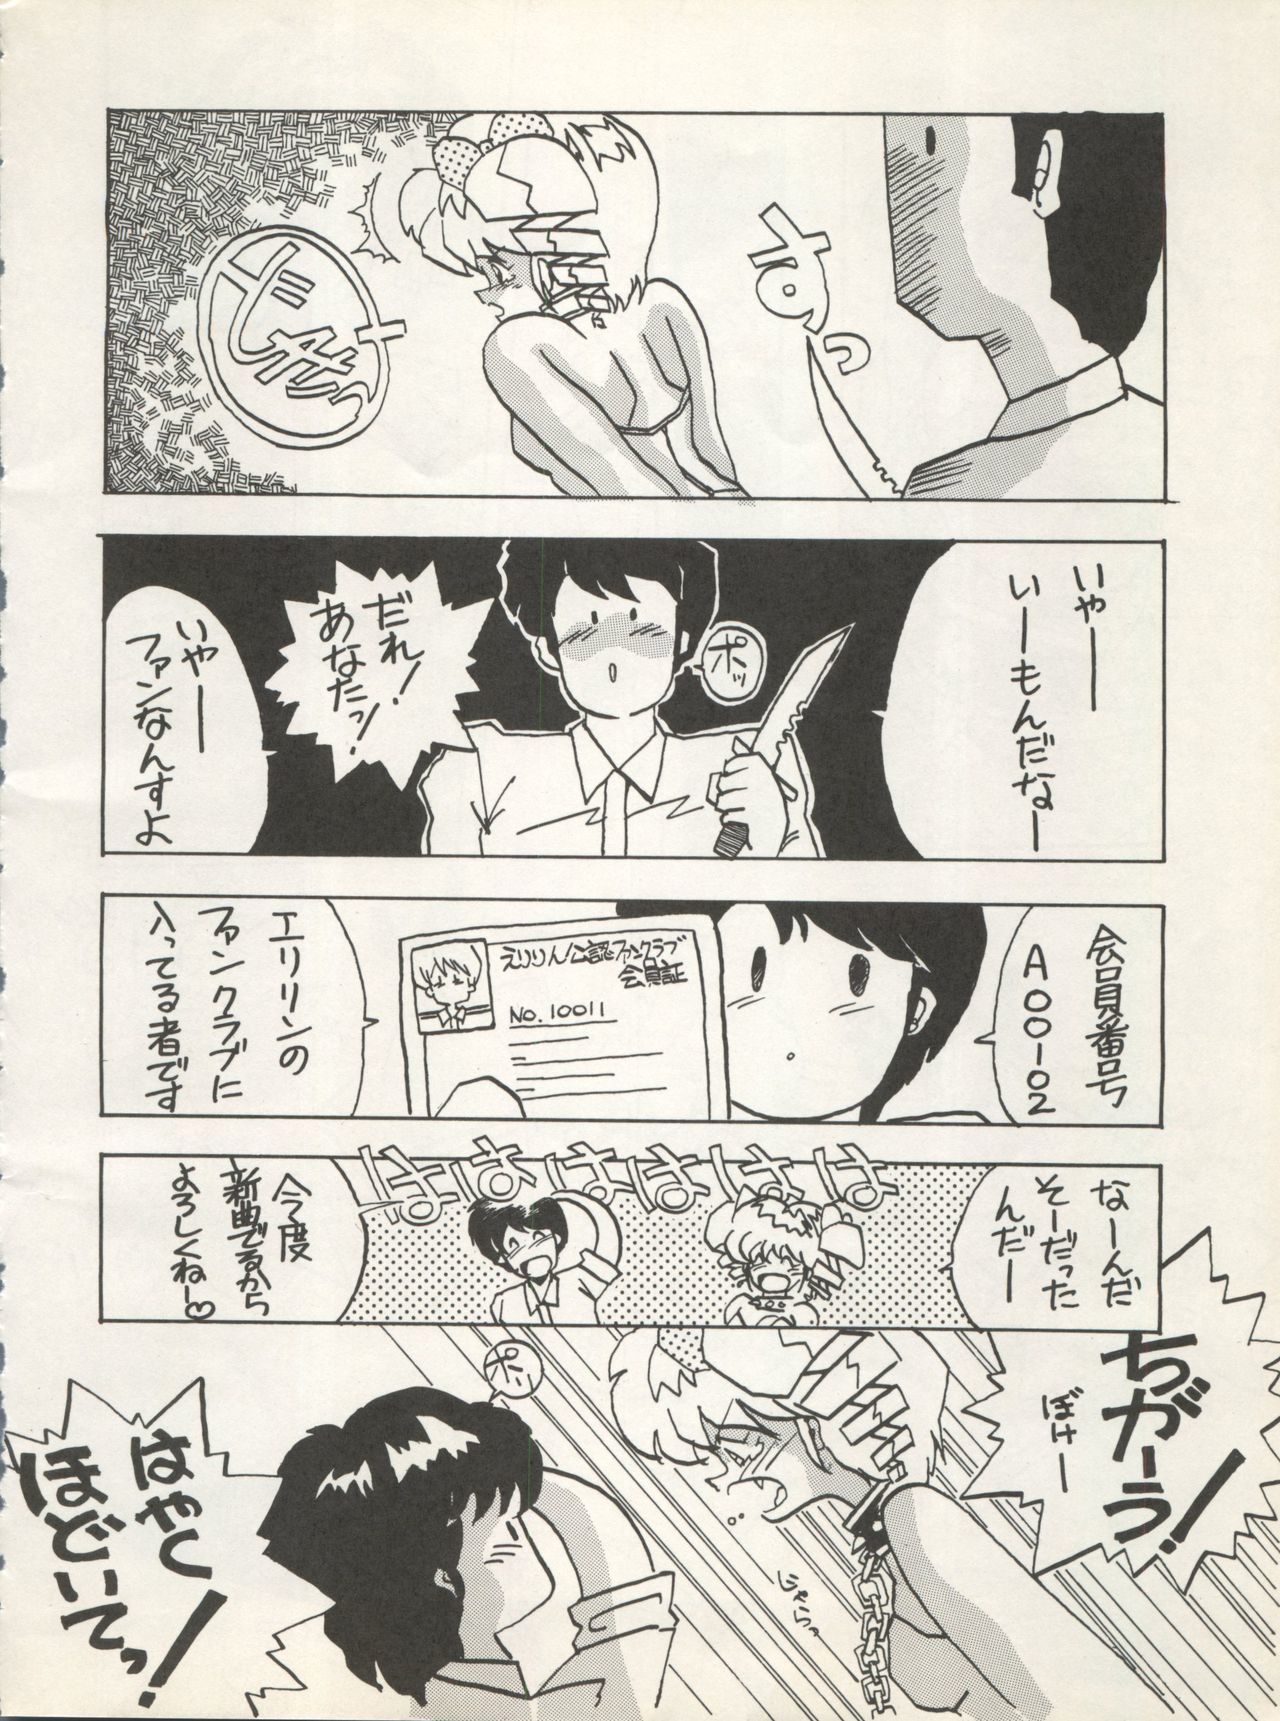 すっ
ドキッ
いやー
いーもんだなー
ポッ
だれ!
あなたっ!
いやー
ファンなんすよ
会員番号
A00-02
えりりん公認ファンクラブ
会員証
No.10011
エリリンの
ファンクラブに
入ってる者です
なーんだ
そーだった
んだー
はははははは
今度
新典でるから
よろしくねー♡
ちがーう!
ぼけー
じゃらっ
ポッ
はやく
ほどいてっ!